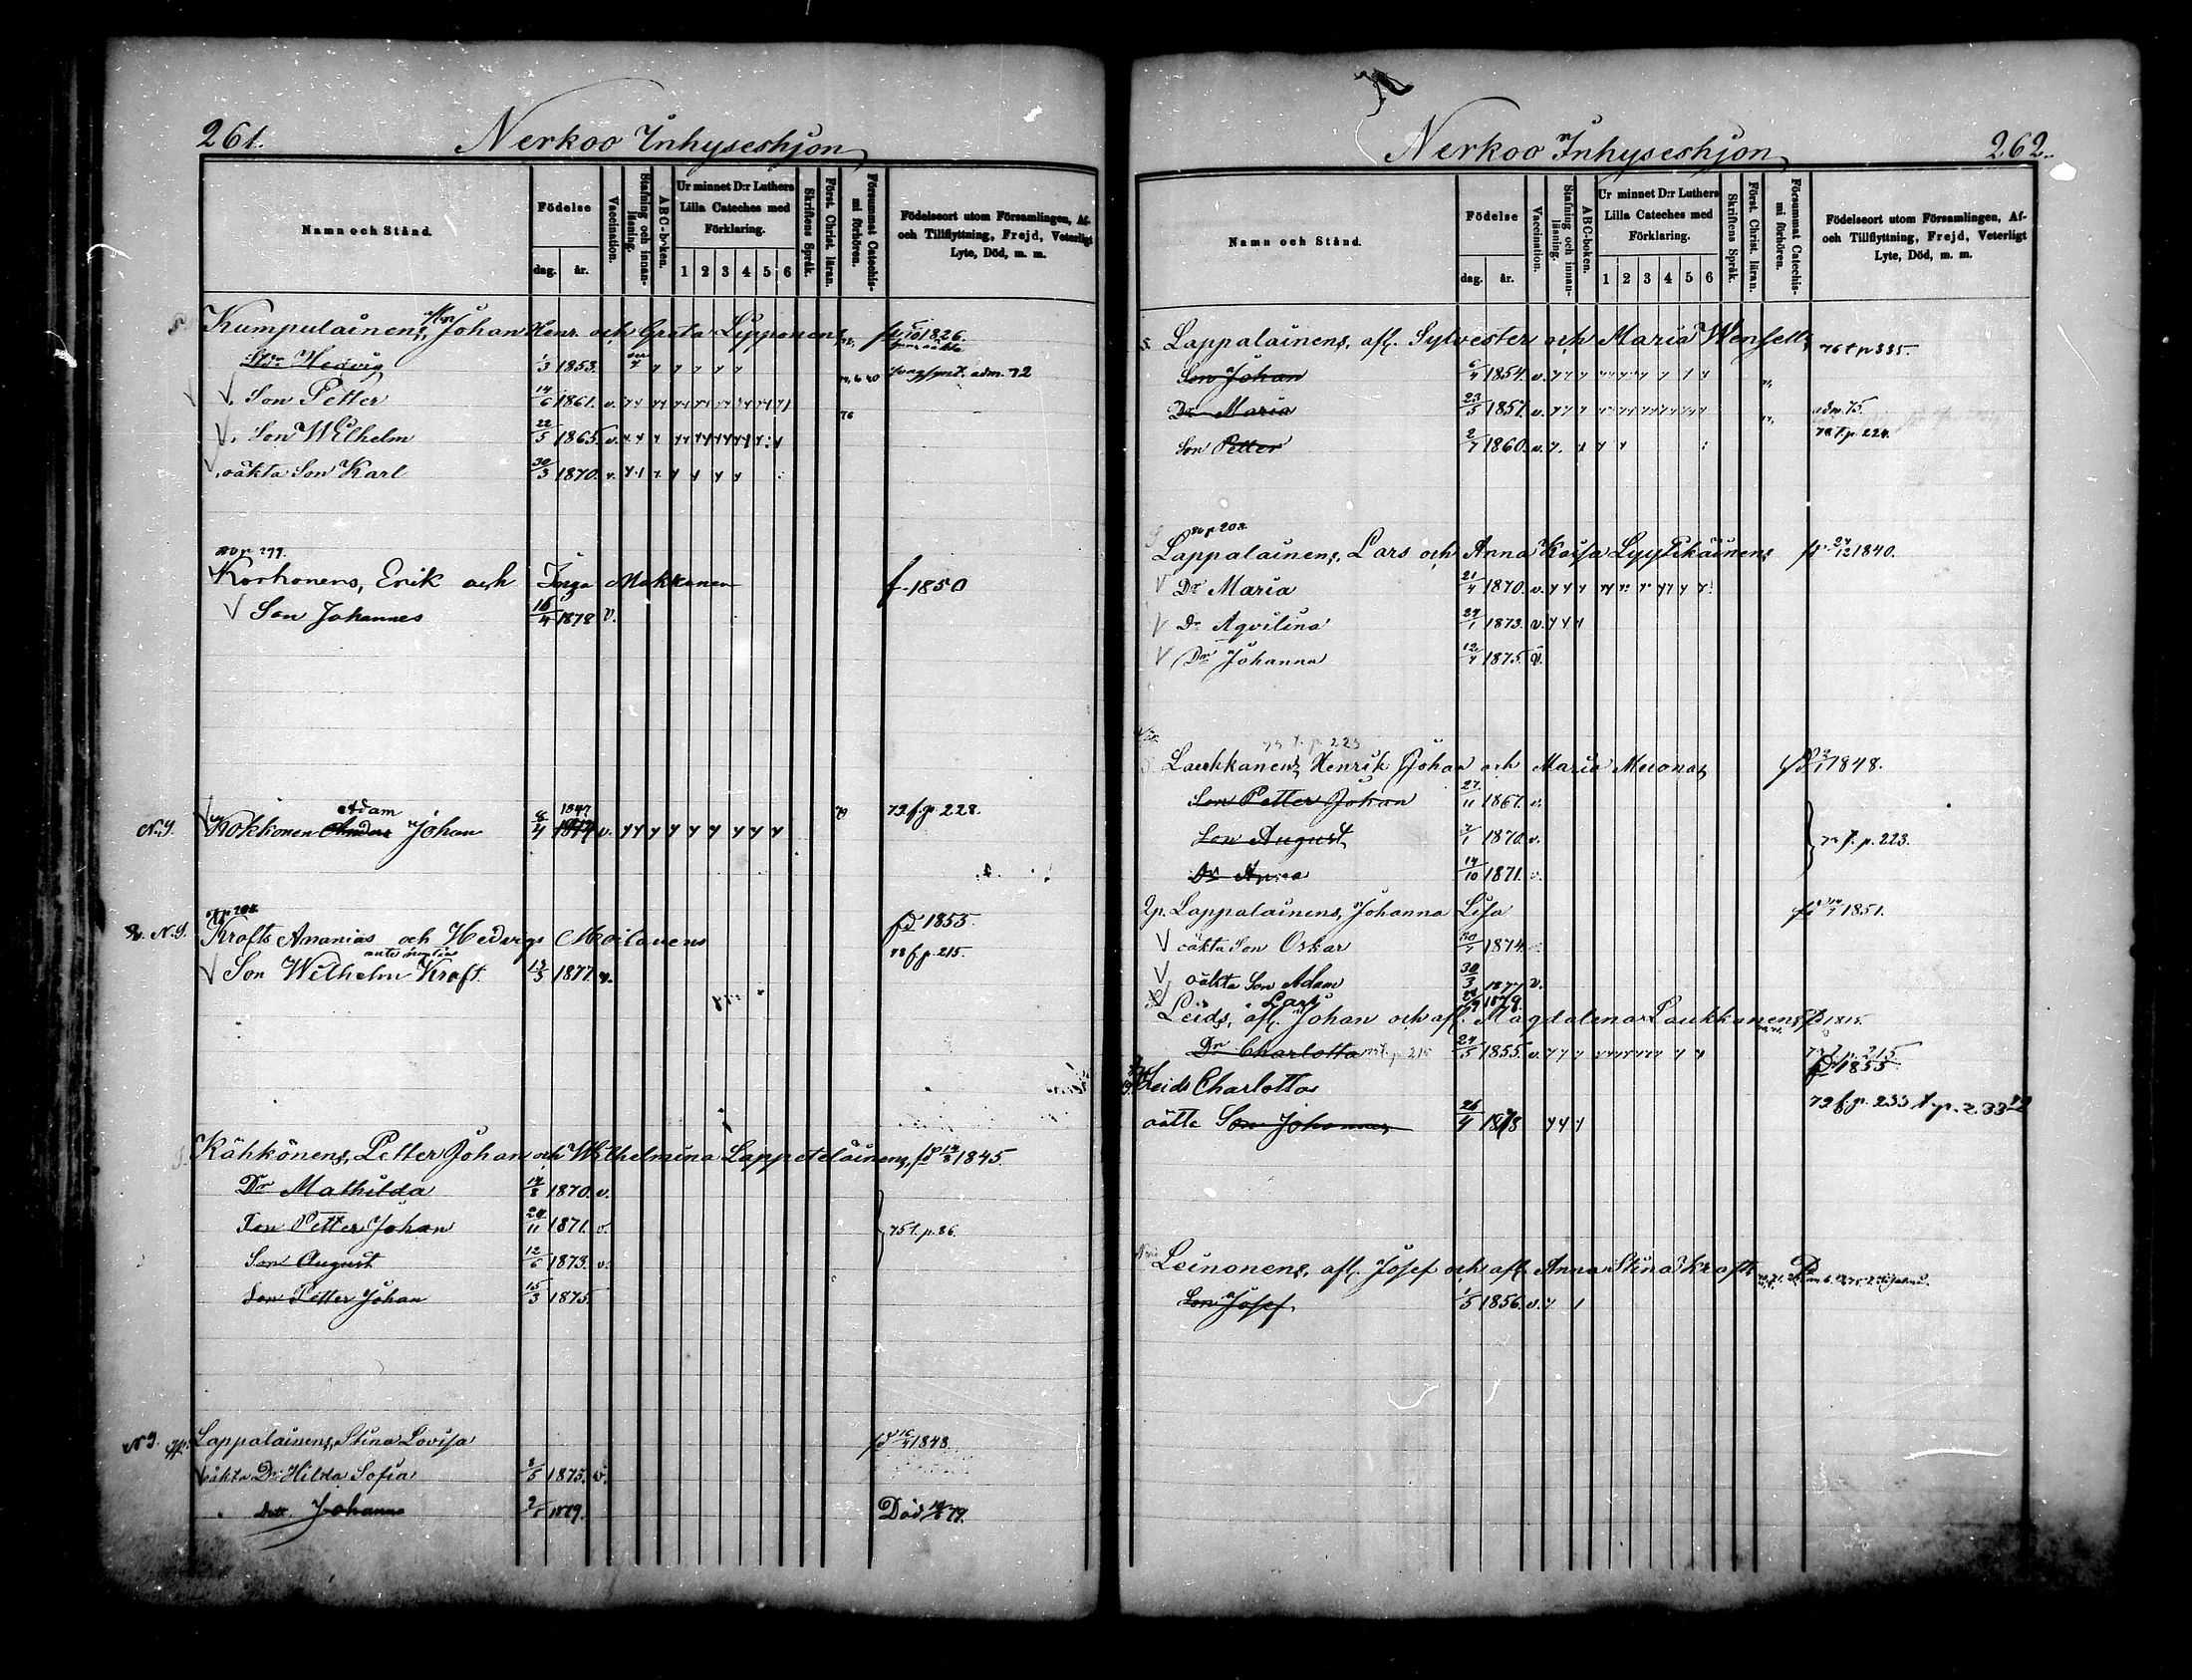 261.
Nerkoo Inhyseshjon
Namn och Stånd.
Födelse
dag.
år.
Vaccination.
Stafning och innanläsning.
ABC-boken.
Ur minnet D:r Luthers
Lilla Cateches med
Förklaring.
1 2 3 4 5 6
Skriftens Språk.
Först. Christ. läran.
Försummat Catechismi förhören.
Födelseort utom Församlingen, Af-
och Tillflyttning, Frejd, Veterligt
Lyte, Död, m. m.
Kumpulainens, Johan Henr. och Greta Lipponens 1826.
Dr Hedvig 1/3 1853. adm. 72
Son Petter 14/6 1861. v. 76
Son Wilhelm 22/5 1865. v.
oäkta Son Karl 30/3 1870. v.
80 p 299.
Korhonens, Erik och Inga Makkonen f. 1850
Son Johannes 16/4 1878 v.
Adam 1847.
N.I. Kokkonen Anders Johan 8/4 v. 72 f. p. 228.
N.I. Krofts Ananias och Hedvigs Moilanens fd 1853
Son Wilhelm Kroft. 13/3 1877. v. 78 f. p. 215.
Kähkönens, Petter Johan och Wilhelmina Lappeteläinens, fd 1845.
Dr Mathilda 14/8 1870. v.
Son Petter Johan 20/11 1871. v. 75 t. p. 86.
Son August 12/6 1873. v.
Son Petter Johan 15/3 1875.
N.I. qp. Lappalainens, Stina Lovisa fd 1848.
oäkta Dr. Hilda Sofia 3/5 1875. v.
" Dott. Johanna 2/5 1879. Död 79.
Nerkoo Inhyseshjon
262.
Namn och Stånd.
Födelse
dag.
år.
Vaccination.
Stafning och innanläsning.
ABC-boken.
Ur minnet D:r Luthers
Lilla Cateches med
Förklaring.
1 2 3 4 5 6
Skriftens Språk.
Först. Christ. läran.
Försummat Catechismi förhören.
Födelseort utom Församlingen, Af-
och Tillflyttning, Frejd, Veterligt
Lyte, Död, m. m.
Lappalainens, afl. Sylvester och Maria Wensells 76 t p 335.
Son Johan 6/4 1854. v.
Dr Maria 23/5 1857. v. adm. 75.
Son Petter 2/7 1860. v. 78 t. p. 224.
80 p 202.
Lappalainens, Lars och Anna Kaisa Lyytikäinens fd 24/12 1840.
Dr Maria 21/4 1870. v.
Dr Aqvilina 24/1 1873. v.
Dr Johanna 12/4 1875. v.
Laukkanens, Henrik Johan och Maria Meuonas 1848.
Son Petter Johan 27/11 1867. v.
Son August 7/1 1870. v. t. p. 223.
Dr Anna 14/10 1871. v.
Qp. Lappalainens, Johanna Lisa 1851.
oäkta Son Oskar 1874.
oäkta Son Adam 30/3 1877 v.
" Lars 1879.
Leids, afl. Johan och afl. Magdalena Laukkanens, 1815.
Dr Charlotta 24/5 1855. v. t. p. 215.
Leids Charlottas 1855
oäkta Son Johannes 26/4 1878 79 f. p. 233
Leinonens, afl. Josef och afl. Anna Stina Krofts
Son Josef 1/5 1856. v.